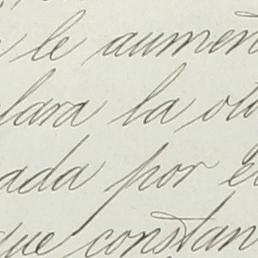 le aumen
lara la ot
ada por e
que constan